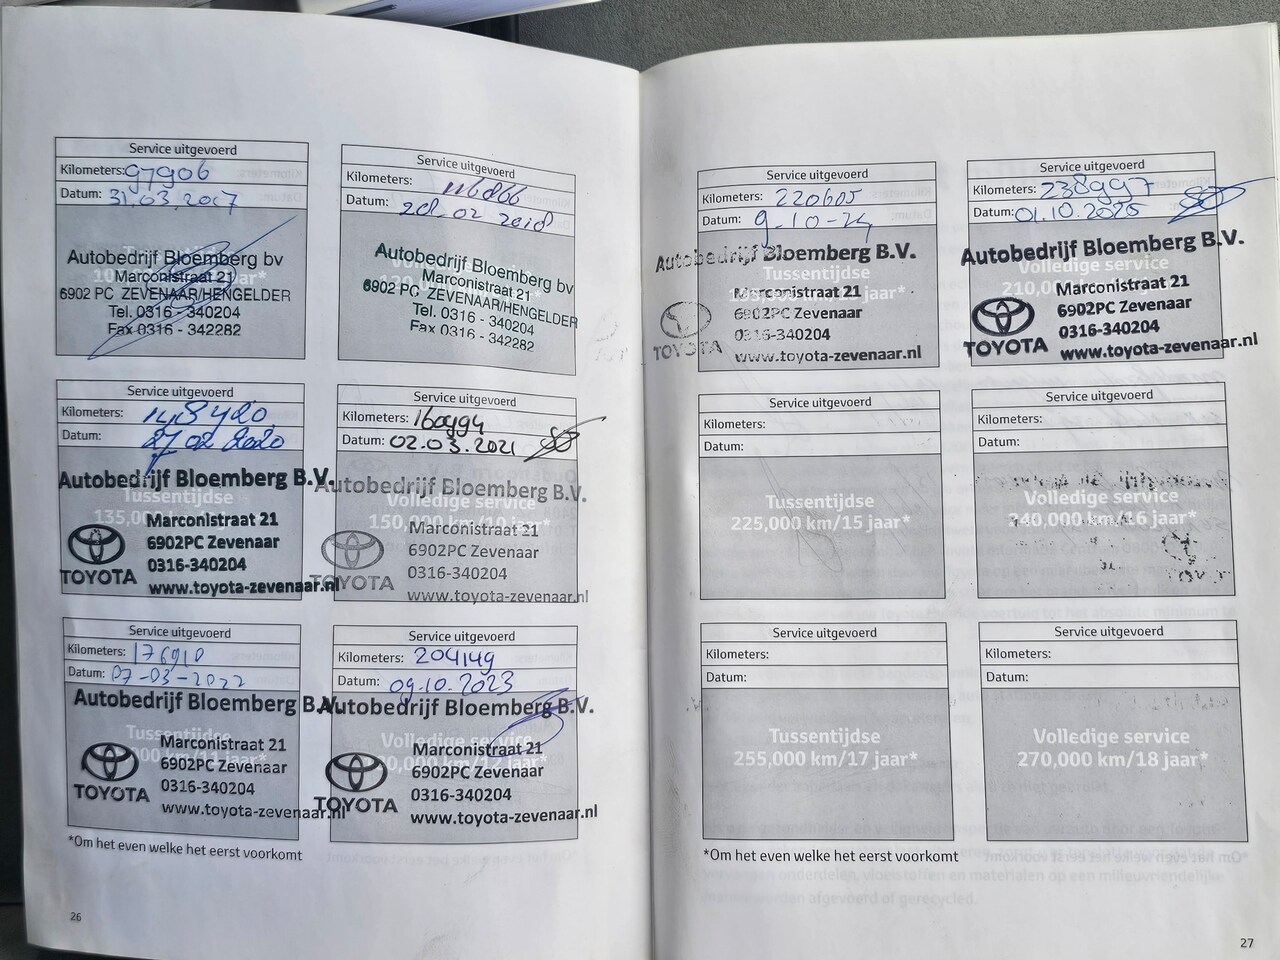 Service uitgevoerd
Kilometers: 97906
Datum: 31.03.2017
Autobedrijf Bloemberg bv
Marconistraat 21
6902 PC ZEVENAAR/HENGELDER
Tel. 0316 - 340204
Fax 0316 - 342282
Service uitgevoerd
Kilometers: 116866
Datum: 28.02 2018
Autobedrijf Bloemberg bv
Marconistraat 21
6902 PC ZEVENAAR/HENGELDER
Tel. 0316 - 340204
Fax 0316 - 342282
Service uitgevoerd
Kilometers: 148420
Datum: 27 02 2020
Autobedrijf Bloemberg B.V.
Tussentijdse
135,000
Marconistraat 21
6902PC Zevenaar
0316-340204
TOYOTA
www.toyota-zevenaar.nl
Service uitgevoerd
Kilometers: 160994
Datum: 02.03.2021
Autobedrijf Bloemberg B.V.
Volledige service
150,000 km/10 jaar*
Marconistraat 21
6902PC Zevenaar
0316-340204
TOYOTA
www.toyota-zevenaar.nl
Service uitgevoerd
Kilometers: 176910
Datum: 07-03-2022
Autobedrijf Bloemberg B.V.
Tussentijdse
km/11 jaar*
Marconistraat 21
6902PC Zevenaar
0316-340204
TOYOTA
www.toyota-zevenaar.nl
Service uitgevoerd
Kilometers: 204149
Datum: 09.10.2023
Autobedrijf Bloemberg B.V.
Volledige service
km/12 jaar*
Marconistraat 21
6902PC Zevenaar
0316-340204
TOYOTA
www.toyota-zevenaar.nl
*Om het even welke het eerst voorkomt
26
Service uitgevoerd
Kilometers: 220605
Datum: 9-10-24
Autobedrijf Bloemberg B.V.
Tussentijdse
jaar*
Marconistraat 21
6902PC Zevenaar
0316-340204
TOYOTA
www.toyota-zevenaar.nl
Service uitgevoerd
Kilometers: 238997
Datum: 01.10.2025
Autobedrijf Bloemberg B.V.
Volledige service
210,000
Marconistraat 21
6902PC Zevenaar
0316-340204
TOYOTA
www.toyota-zevenaar.nl
Service uitgevoerd
Kilometers:
Datum:
Tussentijdse
225,000 km/15 jaar*
Service uitgevoerd
Kilometers:
Datum:
Volledige service
240,000 km/16 jaar*
Service uitgevoerd
Kilometers:
Datum:
Tussentijdse
255,000 km/17 jaar*
Service uitgevoerd
Kilometers:
Datum:
Volledige service
270,000 km/18 jaar*
*Om het even welke het eerst voorkomt
27